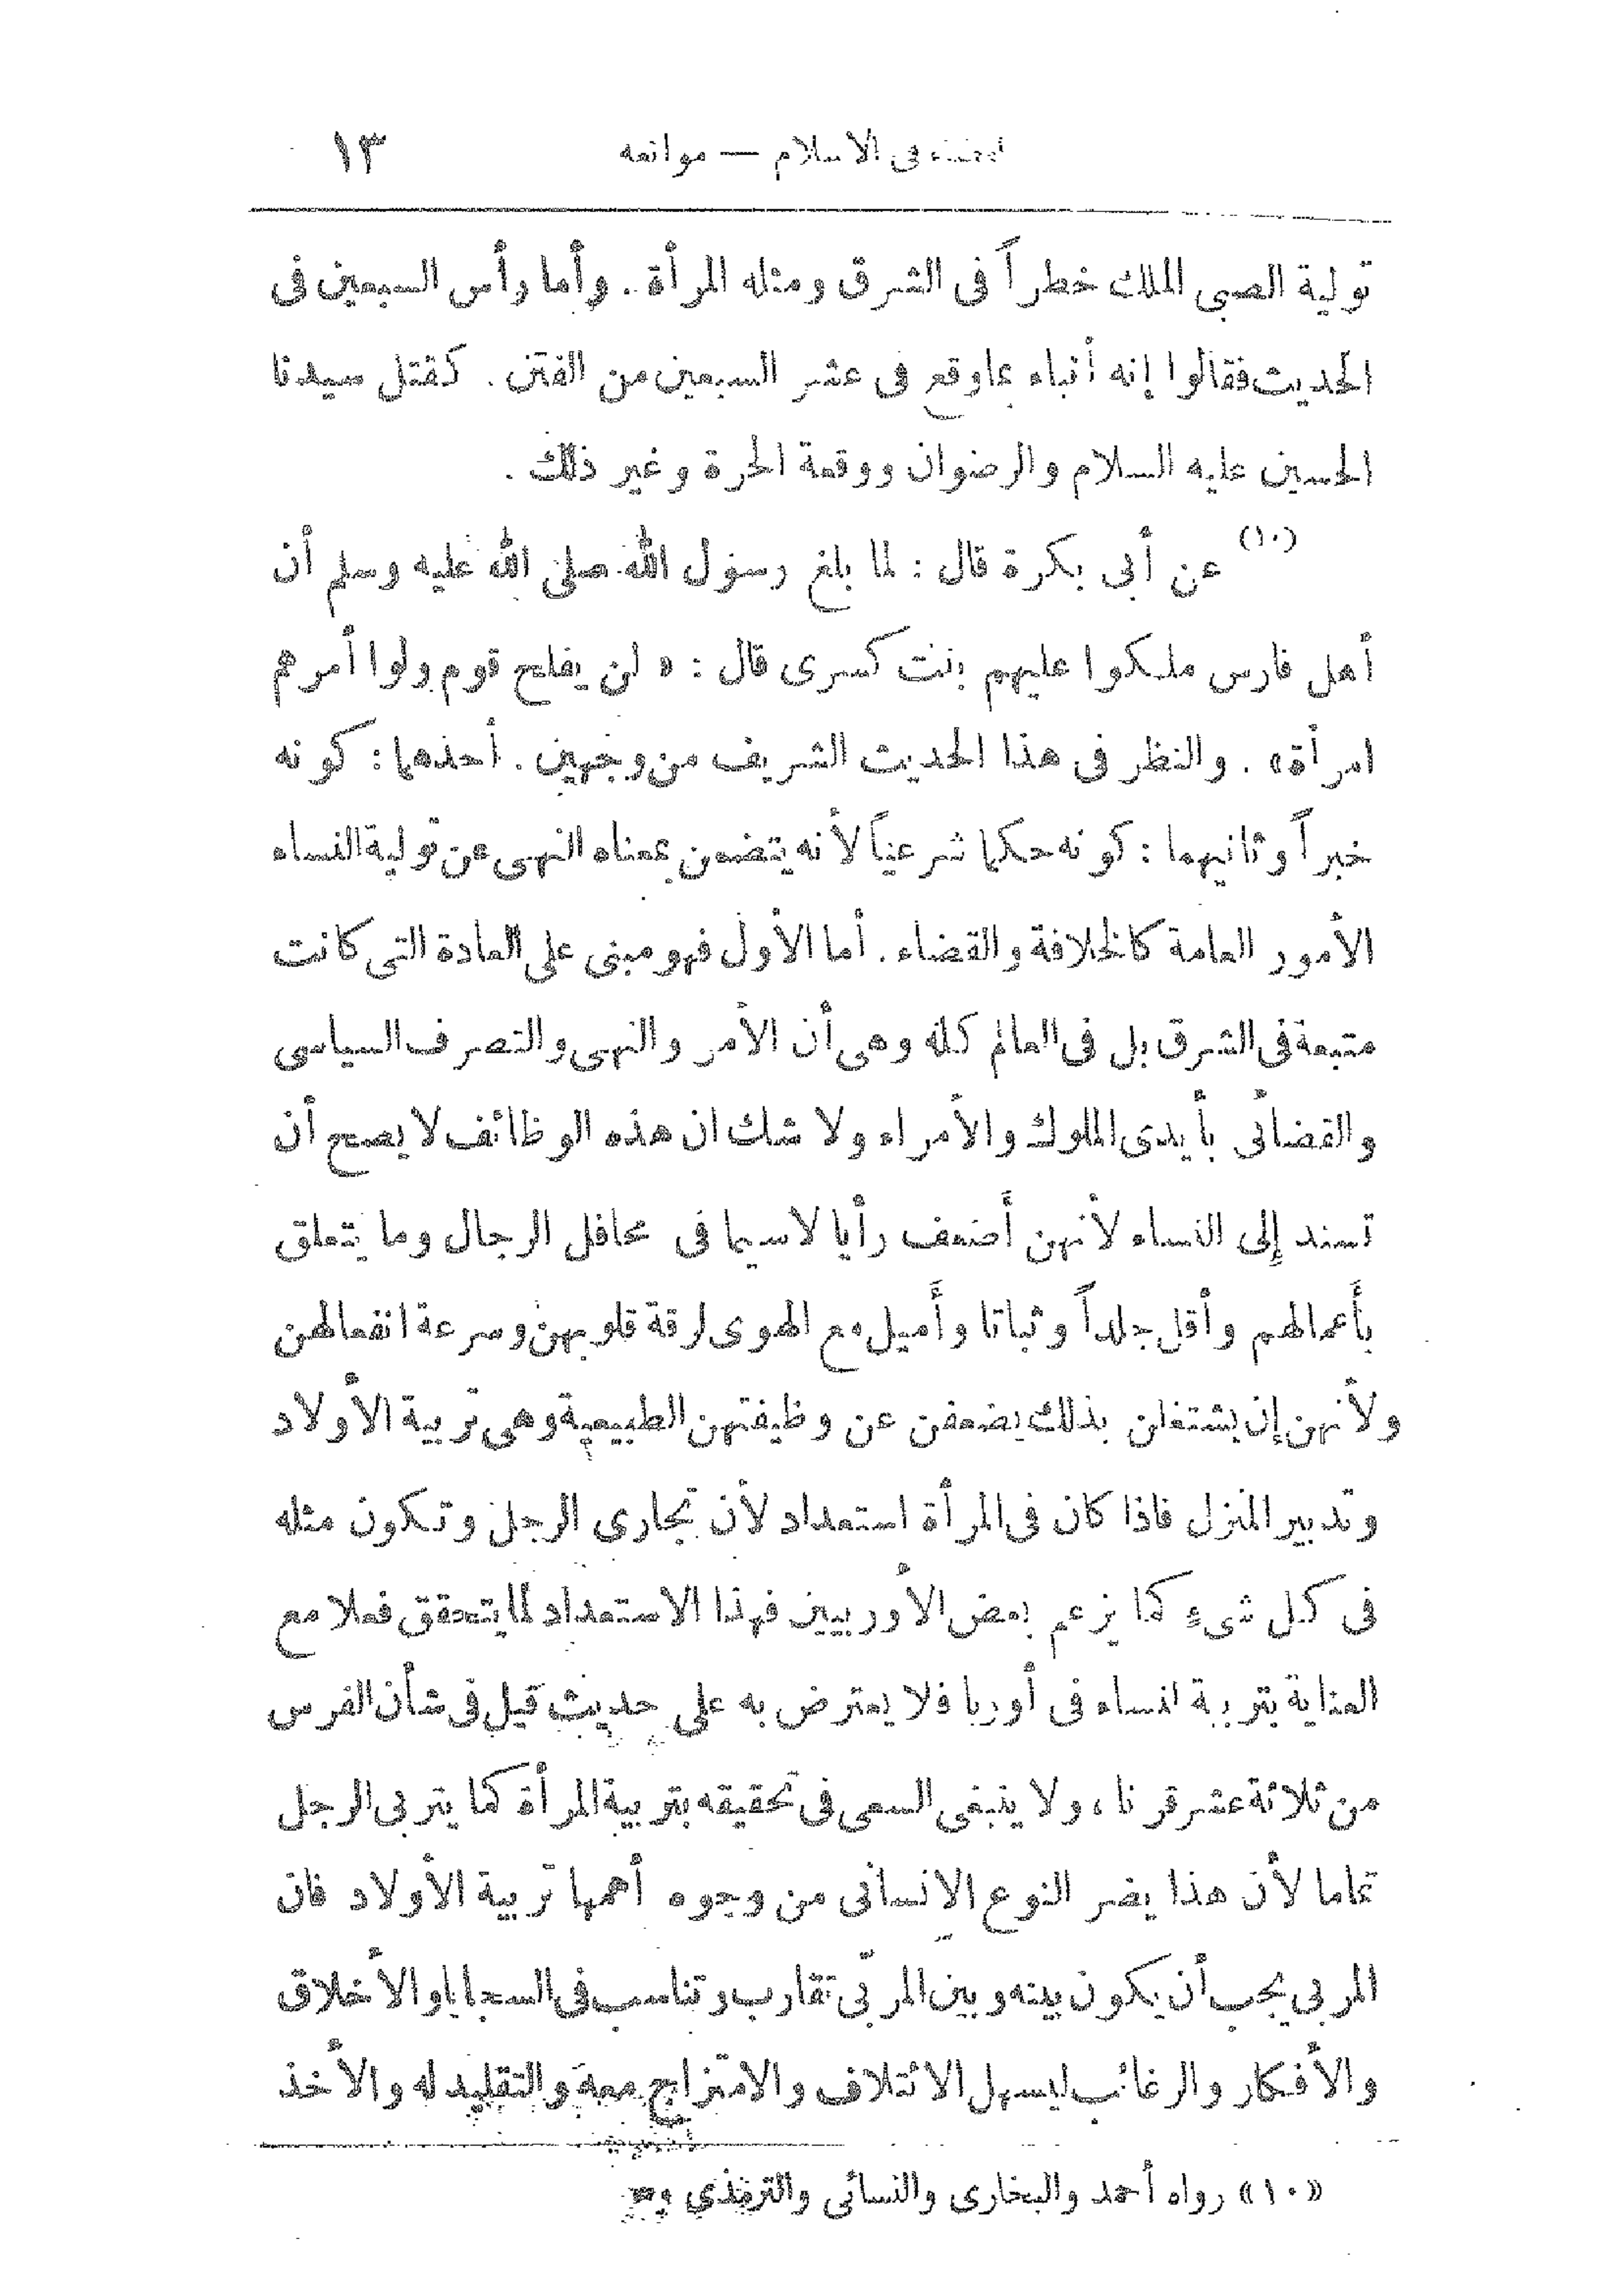 القضاء فى الاسلام — موانعه ١٣
تولية الصبى الملك خطراً فى الشرق ومثله المرأة . وأما رأس السبعين فى
الحديث فقالوا إنه أنباء بما وقع فى عشر السبعين من الفتن . كقتل سيدنا
الحسين عليه السلام والرضوان ووقعة الحرة وغير ذلك .
(١٠) عن أبى بكرة قال : لما بلغ رسول الله صلى الله عليه وسلم أن
أهل فارس ملكوا عليهم بنت كسرى قال : « لن يفلح قوم ولوا أمرهم
امرأة» . والنظر فى هذا الحديث الشريف من وجهين . أحدهما : كونه
خبراً وثانيهما : كونه حكما شرعياً لأنه يتضمن بمعناه النهى عن تولية النساء
الأمور العامة كالخلافة والقضاء . أما الأول فهو مبنى على العادة التى كانت
متبعة فى الشرق بل فى العالم كله وهى أن الأمر والنهى والتصرف السياسى
والقضائى بأيدى الملوك والأمراء ولا شك ان هذه الوظائف لا يصح أن
تسند إلى النساء لأنهن أضعف رأيا لاسيما فى محافل الرجال وما يتعلق
بأعمالهم وأقل جلداً وثباتا وأميل مع الهوى لرقة قلوبهن وسرعة انفعالهن
ولأنهن إن يشتغلن بذلك يضعفن عن وظيفتهن الطبيعية وهى تربية الأولاد
وتدبير المنزل فاذا كان فى المرأة استعداد لأن تجارى الرجل وتكون مثله
فى كل شىء كما يزعم بعض الأوربيين فهذا الاستعداد لما يتحقق فعلا مع
العناية بتربية النساء فى أوربا فلا يعترض به على حديث قيل فى شأن الفرس
من ثلاثة عشر قرنا ، ولا ينبغى السعى فى تحقيقه بتربية المرأة كما يتربى الرجل
تماما لأن هذا يضر النوع الانسانى من وجوه أهمها تربية الأولاد فان
المربي يجب أن يكون بينه وبين المربّى تقارب وتناسب فى السجايا والأخلاق
والأفكار والرغائب ليسهل الائتلاف والامتزاج معه والتقليد له والأخذ
«١٠» رواه أحمد والبخارى والنسائى والترمذي